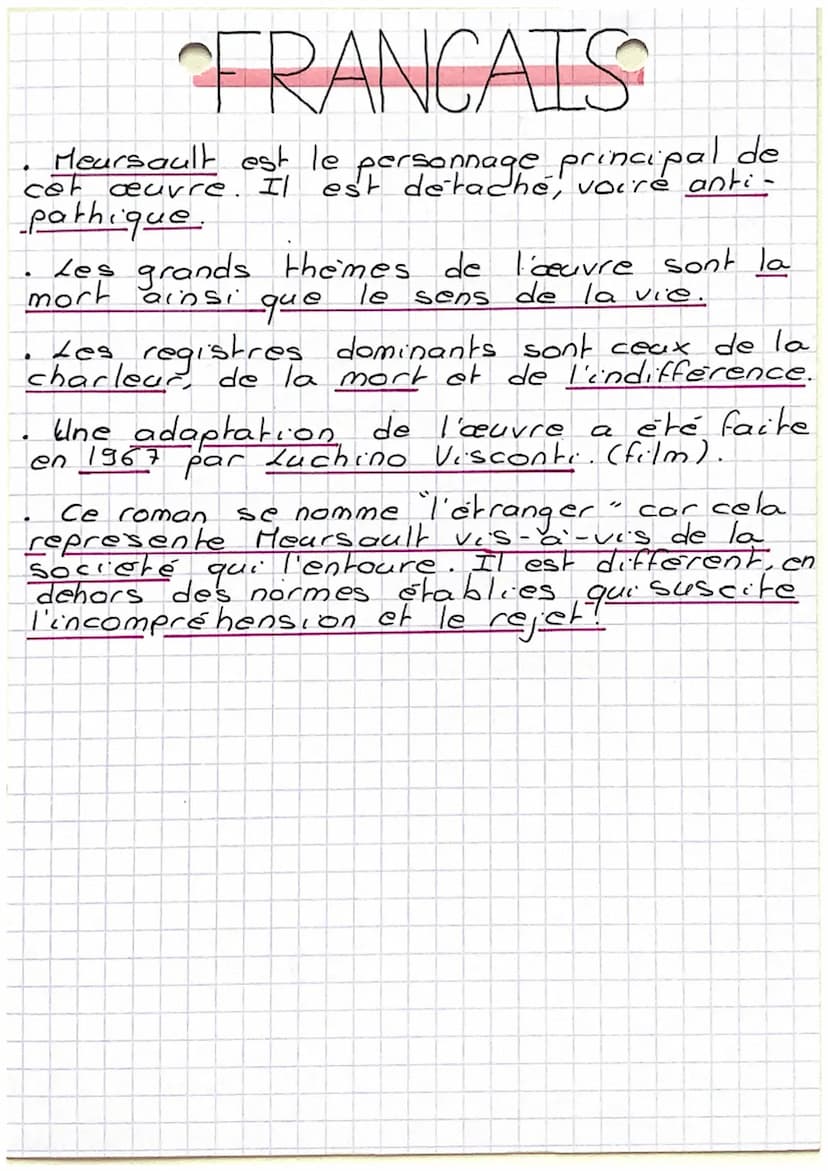 FRANCAIS
. Meursault est le personnage principal de
cet œuvre. Il est détaché, voire anti-
pathique.
. Les grands thèmes de l'œuvre sont la
mort ainsi que le sens de la vie.
. Les registres dominants sont ceux de la
charleur, de la mort et de l'indifférence.
. Une adaptation de l'œuvre a été faite
en 1967 par Luchino Visconti. (film).
. Ce roman se nomme "l'étranger" car cela
représente Meursault vis-à-vis de la
société qui l'entoure. Il est différent, en
dehors des normes établies qui suscite
l'incompréhension et le rejet.